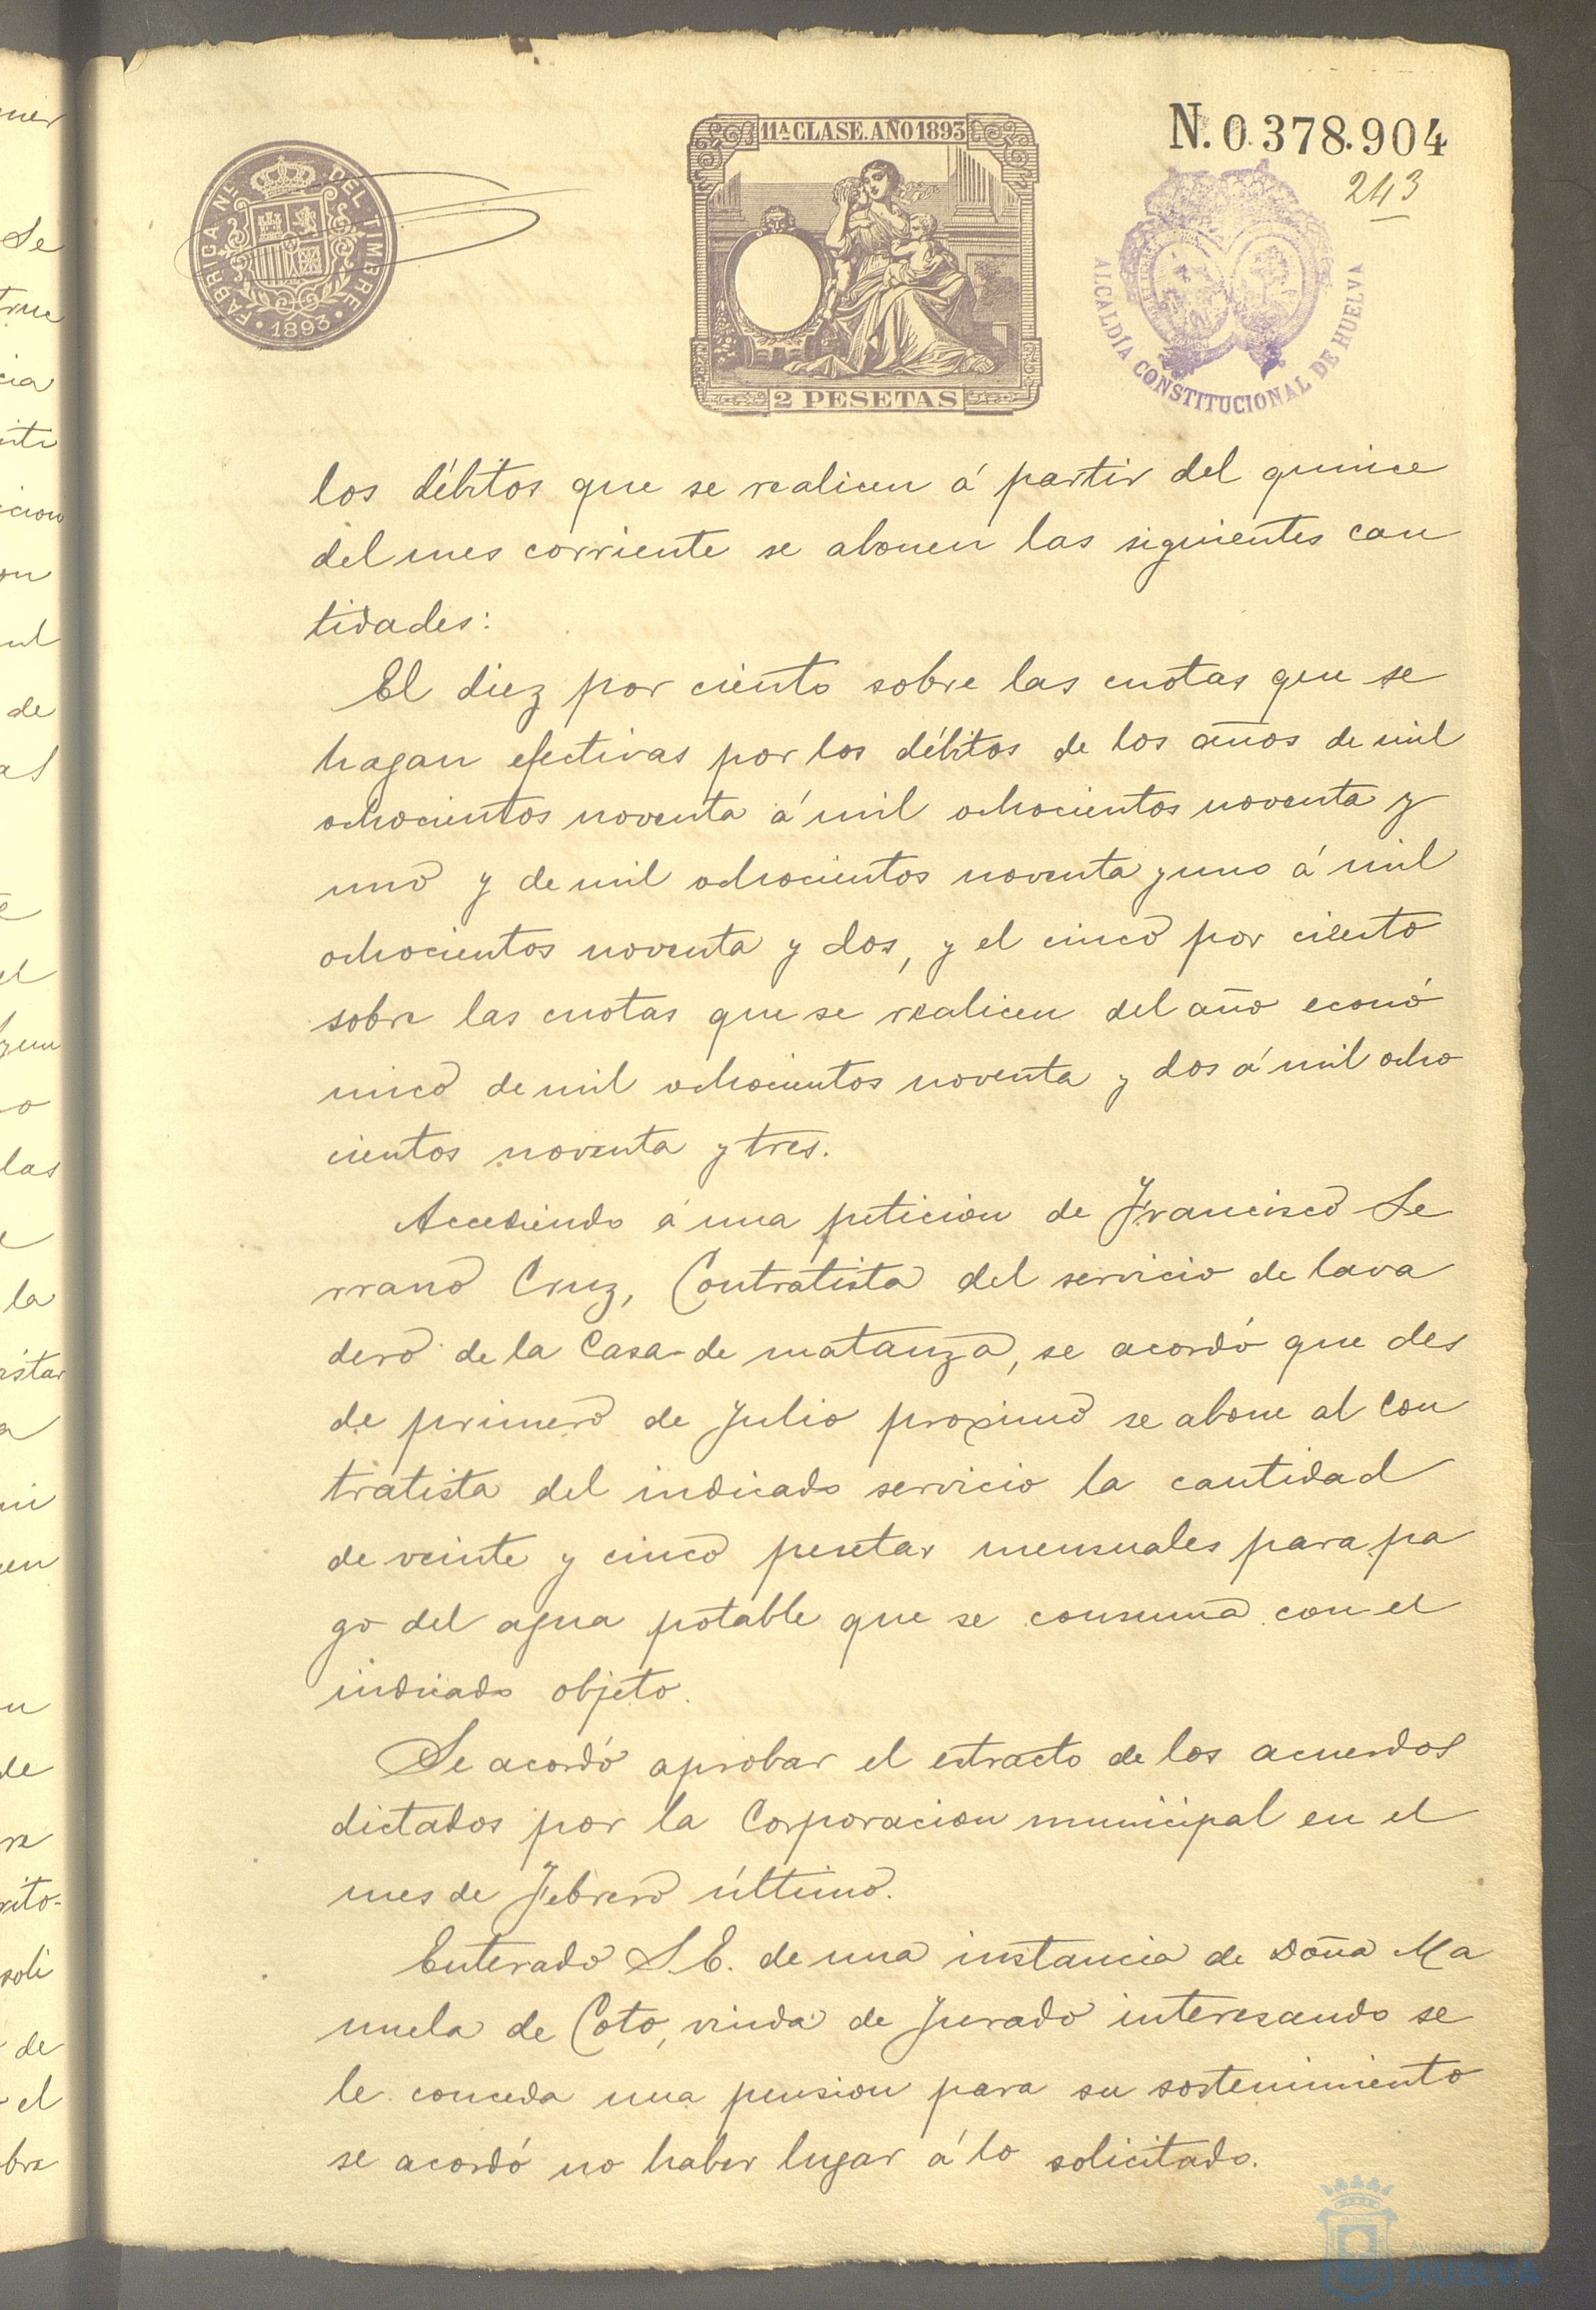 FABRICA NL. DEL TIMBRE
1893
11ª CLASE. AÑO 1893
2 PESETAS
N. 0.378.904
243
ALCALDÍA CONSTITUCIONAL DE HUELVA
los débitos que se realicen á partir del quince
del mes corriente se abonen las siguientes can
tidades:
El diez por ciento sobre las cuotas que se
hagan efectivas por los débitos de los años de mil
ochocientos noventa á mil ochocientos noventa y
uno y de mil ochocientos noventa y uno á mil
ochocientos noventa y dos, y el cinco por ciento
sobre las cuotas que se realicen del año econó
mico de mil ochocientos noventa y dos á mil ocho
cientos noventa y tres.
Accediendo á una peticion de Francisco Se
rrano Cruz, Contratista del servicio de lava
dero de la Casa-de matanza, se acordó que des
de primero de Julio proximo se abone al Con
tratista del indicado servicio la cantidad
de veinte y cinco pesetas mensuales para pa
go del agua potable que se consuma con el
indicado objeto.
Se acordó aprobar el estracto de los acuerdos
dictados por la Corporacion municipal en el
mes de Febrero último.
Enterado S.E. de una instancia de Doña Ma
nuela de Coto, viuda de Jurado interesando se
le conceda una pension para su sostenimiento
se acordó no haber lugar á lo solicitado.
Ayuntamiento de
HUELVA